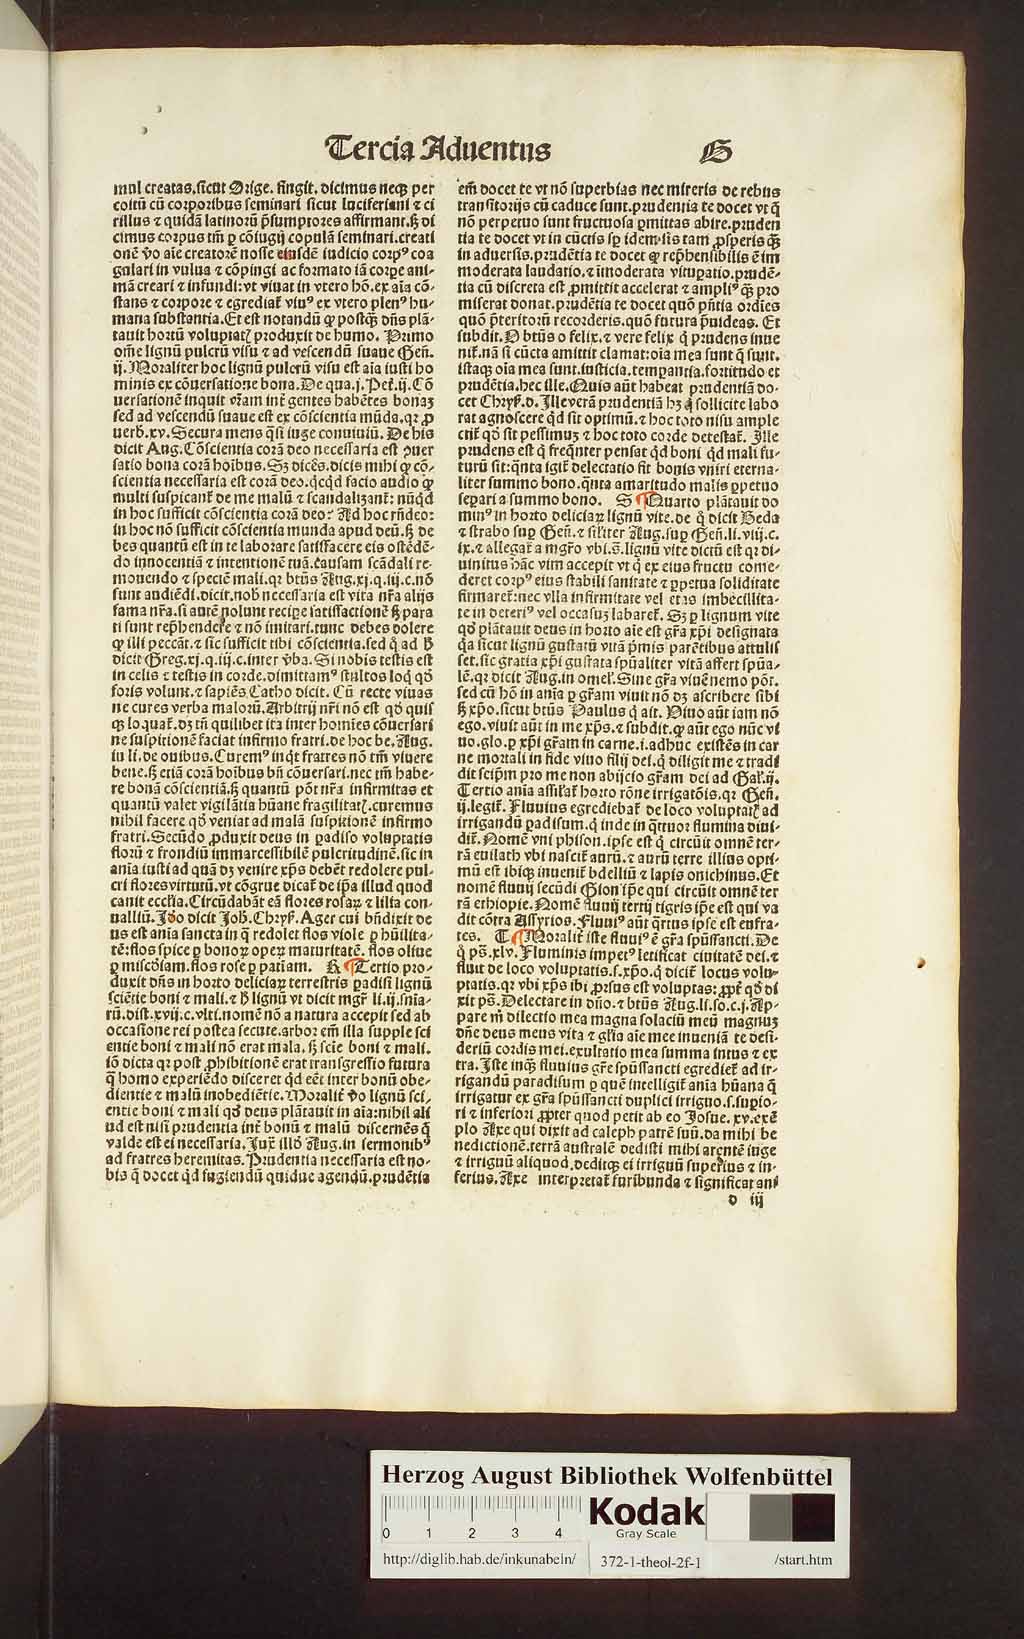 Tercia Aduentus
G
mul creatas.sicut Orige. fingit. dicimus neqꝫ per
coitũ cũ corporibus seminari sicut luciferiani ⁊ ci
rillus ⁊ quidã latinorũ p̃sumptores affirmant.sꝫ di
cimus corpus tm̃ ꝑ cõiugij copulã seminari.creati
onẽ ỽo aĩe creatorẽ nosse eiusdẽ iudicio corpꝰ coa
gulari in vulua ⁊ cõpingi ac formato iã corꝑe ani-
mã creari ⁊ infundi:vt viuat in vtero hõ.ex aĩa cõ-
stans ⁊ corpore ⁊ egrediat᷑ viuꝰ ex vtero plenꝰ hu-
mana substantia.Et est notandũ ꝙ postqꝫ dñs plã-
tauit hortũ voluptatꝭ produxit de humo. Primo
om̃e lignũ pulcrũ visu ⁊ ad vescendũ suaue Geñ.
ij.Moraliter hoc lignũ pulcrũ visu est aĩa iusti ho
minis ex cõuersatione bona.De qua.j.Pet᷑.ij.Cõ
uersationẽ inquit vr̃am int᷑ gentes habẽtes bonaꝫ
sed ad vescendũ suaue est ex cõscientia mũda.qꝛ ꝓ
uerb.xv.Secura mens q̃si iuge conuiuiũ. De his
dicit Aug.Cõscientia corã deo necessaria est ꝯuer
satio bona corã hoĩbus.Sꝫ dicẽs.dicis mihi ꝙ cõ-
scientia necessaria est corã deo.qcqd facio audio ꝙ
multi suspicant᷑ de me malũ ⁊ scandalizant᷑: nũqd
in hoc sufficit cõscientia corã deo? Ad hoc rñdeo:
in hoc nõ sufficit cõscientia munda apud deũ.sꝫ de
bes quantũ est in te laborare satisfacere eis ostẽdẽ-
do innocentiã ⁊ intentionẽ tuã.causam scãdali re-
mouendo ⁊ speciẽ mali.qꝛ btũs Aug.xj.q.iij.c.nõ
sunt audiẽdi.dicit.nob̃ necessaria est vita nr̃a alijs
fama nr̃a.si autẽ nolunt reciꝑe satisfactionẽ sꝫ para
ti sunt rep̃hendere ⁊ nõ imitari.tunc debes dolere
ꝙ illi peccãt.⁊ sic sufficit tibi cõscientia.sed q̃ ad ħ
dicit Greg.xj.q.iij.c.inter v̓ba. Si nobis testis est
in celis ⁊ testis in corde.dimittamꝰ stultos loq̃ qđ
foris volunt.⁊ sapiẽs Catho dicit. Cũ recte viuas
ne cures verba malorũ.Arbitrij nr̃i nõ est qđ quis
qꝫ loquat᷑.dꝫ tñ quilibet ita inter homĩes cõuersari
ne suspitionẽ faciat infirmo fratri.de hoc be.Aug.
in li.de ouibus.Curemꝰ inqt fratres nõ tm̃ viuere
bene.sꝫ etiã corã hoĩbus bñ cõuersari.nec tm̃ habe-
re bonã cõscientiã.sꝫ quantũ põt nr̃a infirmitas et
quantũ valet vigilãtia hũane fragilitatꝭ.curemus
nihil facere qđ veniat ad malã suspitionẽ infirmo
fratri.Secũdo ꝓduxit deus in ꝑadiso voluptatis
florũ ⁊ frondiũ immarcessibilẽ pulcritudinẽ.sic in
anĩa iusti ad quã dꝫ venire xp̃s debẽt redolere pul-
cri flores virtutũ.vt cõgrue dicat᷑ de ip̃a illud quod
canit eccl̃ia.Circũdabãt eã flores rosaꝝ ⁊ lilia con-
ualliũ.Iđo dicit Joh̃.Chryẜ.Ager cui bñdixit de
us est anĩa sancta in q̃ redolet flos viole ꝑ hũilita-
tẽ:flos spice ꝑ bonoꝝ oꝑeꝝ maturitatẽ.flos oliue
ꝑ misc̃diam.flos rose ꝑ patiam. R ¶Tertio pro-
duxit dñs in horto deliciaꝝ terrestris ꝑadisi lignũ
sciẽtie boni ⁊ mali.⁊ ħ lignũ vt dicit mgr̃ li.ij.snĩa-
rũ.dist.xvij.c.vlti.nomẽ nõ a natura accepit sed ab
occasione rei postea secute.arbor em̃ illa supple sci
entie boni ⁊ mali nõ erat mala.sꝫ scĩe boni ⁊ mali.
iõ dicta qꝛ post ꝓhibitionẽ erat transgressio futura
q̃ homo experiẽdo disceret qđ eẽt inter bonũ obe-
dientie ⁊ malũ inobediẽtie.Moralit᷑ ỽo lignũ sci-
entie boni ⁊ mali qđ deus plãtauit in aĩa:nihil ali
ud est nisi prudentia int᷑ bonũ ⁊ malũ discernẽs q̃
valde est ei necessaria.Jux᷑ illđ Aug.in sermonibꝰ
ad fratres heremitas.Prudentia necessaria est no-
bis q̃ docet qđ fugiendũ quidue agendũ.prudẽtia
em̃ docet te vt nõ superbias nec mireris de rebus
transitorijs cũ caduce sunt.prudentia te docet vt q̃
nõ perpetuo sunt fructuosa ꝑmittas abire.pruden
tia te docet vt in cũctis sp̱ idem sis tam ꝓsperis qꝫ
in aduersis.prudẽtia te docet ꝙ rep̃hensibilis ẽ im
moderata laudatio.⁊ ĩmoderata vitupatio.prudẽ-
tia cũ discreta est ꝓmittit accelerat ⁊ ampliꝰ qꝫ pro
miserat donat.prudẽtia te docet quõ p̃ntia ordĩes
quõ p̃teritorũ recorderis.quõ futura p̃uideas. Et
subdit.O btũs o felix.⁊ vere felix q̃ prudens inue
nit᷑.nã si cũcta amittit clamat:oĩa mea sunt q̃ sunt.
istaqꝫ oĩa mea sunt.iusticia.temꝑantia.fortitudo et
prudẽtia.hec ille.Quis aũt habeat prudentiã do-
cet Chryẜ.d.Ille verã prudentiã hꝫ q̃ sollicite labo
rat agnoscere qđ sit optimũ.⁊ hoc toto nisu ample
ctit᷑ qđ sit pessimuꝫ ⁊ hoc toto corde detestat᷑. Ille
prudens est q̃ freq̃nter pensat qđ boni qđ mali fu-
turũ sit:q̃nta igit᷑ delectatio sit bonis vniri eterna-
liter summo bono.q̃nta amaritudo malis ꝑpetuo
seꝑari a summo bono. S ¶Quarto plãtauit do
minꝰ in horto deliciaꝝ lignũ vite.de q̃ dicit Beda
⁊ strabo suꝑ Geñ.⁊ sil̃iter Aug.suꝑ Geñ.li.viij.c.
ix.⁊ allegat᷑ a mgr̃o vbi.s̃.lignũ vite dictũ est qꝛ di-
uinitus hãc vim accepit vt q̃ ex eius fructu come-
deret corpꝰ eius stabili sanitate ⁊ ꝑpetua soliditate
firmaret᷑:nec vlla infirmitate vel etas imbecillita-
te in deteriꝰ vel occasuꝫ labaret᷑. Sꝫ ꝑ lignum vite
qđ plãtauit deus in horto aĩe est gr̃a xp̃i designata
q̃a sicut lignũ gustatũ vitã p̃mis parẽtibus attulis
set.sic gratia xp̃i gustata spũaliter vitã affert spũa-
lẽ.qꝛ dicit Aug.in omel᷑.Sine gr̃a viuẽ nemo põt.
sed cũ hõ in anĩa ꝑ gr̃am viuit nõ dꝫ ascribere sibi
sꝫ xp̃o.sicut btũs Paulus q̃ ait. Viuo aũt iam nõ
ego.viuit aũt in me xp̃s.⁊ subdit.ꝙ aũt ego nũc vi
uo.glo.ꝑ xp̃i gr̃am in carne.i.adhuc existẽs in car
ne mortali in fide viuo filij dei.q̃ diligit me ⁊ tradi
dit seip̃m pro me non abijcio gr̃am dei ad Gal᷑.ij.
Tertio anĩa assil̃at᷑ horto rõne irrigatõis.qꝛ Geñ.
ij.legit᷑.Fluuius egrediebat᷑ de loco voluptatꝭ ad
irrigandũ ꝑadisum.q̃ inde in q̃tuor flumina diui-
dit᷑.Nomẽ vni phison.ipse est q̃ circũit omnẽ ter-
rã euilath vbi nascit᷑ aurũ.⁊ aurũ terre illius opti-
mũ est ibiqꝫ inuenit᷑ bdelliũ ⁊ lapis onichinus.Et
nomẽ fluuij secũdi Gion ip̃e qui circũit omnẽ ter
rã ethiopie.Nomẽ fluuij tertij tigris ip̃e est qui va
dit cõtra Assyrios. Fluuiꝰ aũt q̃rtus ipse est eufra-
tes. T ¶Moralit᷑ iste fluuiꝰ ẽ gr̃a spũssancti.De
q̃ ps̃.xlv.Fluminis impetꝰ letificat ciuitatẽ dei.⁊
fluit de loco voluptatis.s.xp̃o.q̃ dicit᷑ locus volu-
ptatis.qꝛ vbi xp̃s ibi ꝓrsus est voluptas:ꝓpt᷑ qđ di
xit ps̃.Delectare in dño.⁊ btũs Aug.li.so.c.j.Ap-
pare m̃ dilectio mea magna solaciũ meũ magnuꝫ
dñe deus meus vita ⁊ gl̃ia aĩe mee inueniã te desi-
deriũ cordis mei.exultatio mea summa intus ⁊ ex
tra.Iste inqꝫ fluuius gr̃e spũssancti egrediet᷑ ad ir-
rigandũ paradisum ꝑ quẽ intelligit᷑ anĩa hũana q̃
irrigatur ex gr̃a spũssancti duplici irriguo.s.suꝑio-
ri ⁊ inferiori ꝓpter quod petit ab eo Josue.xv.exẽ
plo Axe qui dixit ad caleph patrẽ suũ.da mihi be
nedictionẽ.terrã australẽ dedisti mihi arẽntẽ iuge
⁊ irriguũ aliquod.deditqꝫ ei irriguũ superius ⁊ in-
ferius.Axe interpretat᷑ furibunda ⁊ significat ani
d iij
Herzog August Bibliothek Wolfenbüttel
0 1 2 3 4
Kodak
Gray Scale
http://diglib.hab.de/inkunabeln/
372-1-theol-2f-1
/start.htm